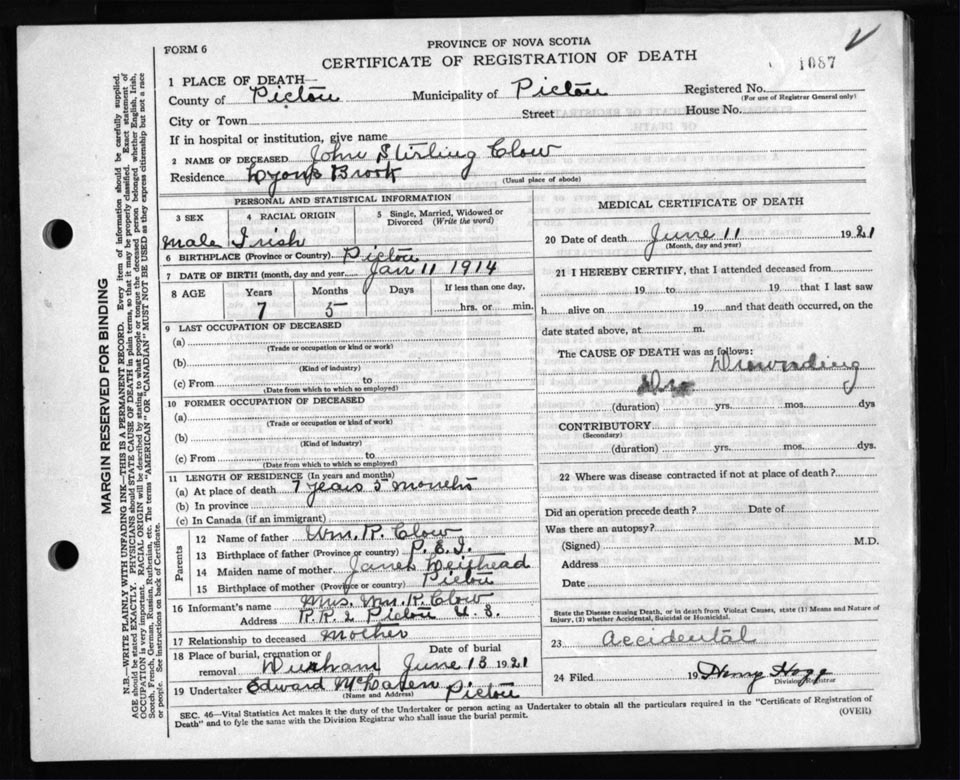 FORM 6
PROVINCE OF NOVA SCOTIA
CERTIFICATE OF REGISTRATION OF DEATH
1087
1 PLACE OF DEATH—
County of Pictou Municipality of Pictou Registered No.
(For use of Registrar General only)
City or Town Street House No.
If in hospital or institution, give name
2 NAME OF DECEASED John Stirling Clow
Residence Lyons Brook
(Usual place of abode)
PERSONAL AND STATISTICAL INFORMATION
3 SEX 4 RACIAL ORIGIN 5 Single, Married, Widowed or Divorced (Write the word)
Male Irish
6 BIRTHPLACE (Province or Country) Pictou
7 DATE OF BIRTH (month, day and year) Jan 11 1914
8 AGE Years Months Days If less than one day,
7 5 hrs. or min.
9 LAST OCCUPATION OF DECEASED
(a)
(Trade or occupation or kind or work)
(b)
(Kind of industry)
(c) From to
(Date from which to which so employed)
10 FORMER OCCUPATION OF DECEASED
(a)
(Trade or occupation or kind of work)
(b)
(Kind of industry)
(c) From to
(Date from which to which so employed)
11 LENGTH OF RESIDENCE (In years and months)
(a) At place of death 7 years 5 months
(b) In province
(c) In Canada (if an immigrant)
Parents
12 Name of father Wm. R. Clow
13 Birthplace of father (Province or country) P.E.I.
14 Maiden name of mother Janet
15 Birthplace of mother (Province or country) Pictou
16 Informant's name Mrs. Wm. R. Clow
Address R.R. 2 Pictou N.S.
17 Relationship to deceased Mother
18 Place of burial, cremation or removal Durham Date of burial June 13 1921
19 Undertaker Edward McLaren Pictou
(Name and Address)
MEDICAL CERTIFICATE OF DEATH
20 Date of death June 11 1921
(Month, day and year)
21 I HEREBY CERTIFY, that I attended deceased from
19 to 19 that I last saw
h alive on 19 and that death occurred, on the
date stated above, at m.
The CAUSE OF DEATH was as follows:
Drownding
(duration) yrs. mos. dys
CONTRIBUTORY
(Secondary)
(duration) yrs. mos. dys.
22 Where was disease contracted if not at place of death?
Did an operation precede death? Date of
Was there an autopsy?
(Signed) M.D.
Address
Date
State the Disease causing Death, or in death from Violent Causes, state (1) Means and Nature of
Injury, (2) whether Accidental, Suicidal or Homicidal.
23 Accidental
24 Filed 19 Henry Hogg
Division Registrar
SEC. 46—Vital Statistics Act makes it the duty of the Undertaker or person acting as Undertaker to obtain all the particulars required in the "Certificate of Registration of
Death" and to fyle the same with the Division Registrar who shall issue the burial permit.
(OVER)
MARGIN RESERVED FOR BINDING
N.B.—WRITE PLAINLY WITH UNFADING INK—THIS IS A PERMANENT RECORD. Every item of information should be carefully supplied.
AGE should be stated EXACTLY. PHYSICIANS should STATE CAUSE OF DEATH in plain terms, so that it may be properly classified. Exact statement of
OCCUPATION is very important. RACIAL ORIGIN will be described by stating to what people or tongue the deceased person belonged whether English, Irish,
Scotch, French, German, Russian, Ruthenian, etc. The terms "AMERICAN" OR "CANADIAN" MUST NOT BE USED as they express citizenship but not a race
or people. See instructions on back of Certificate.